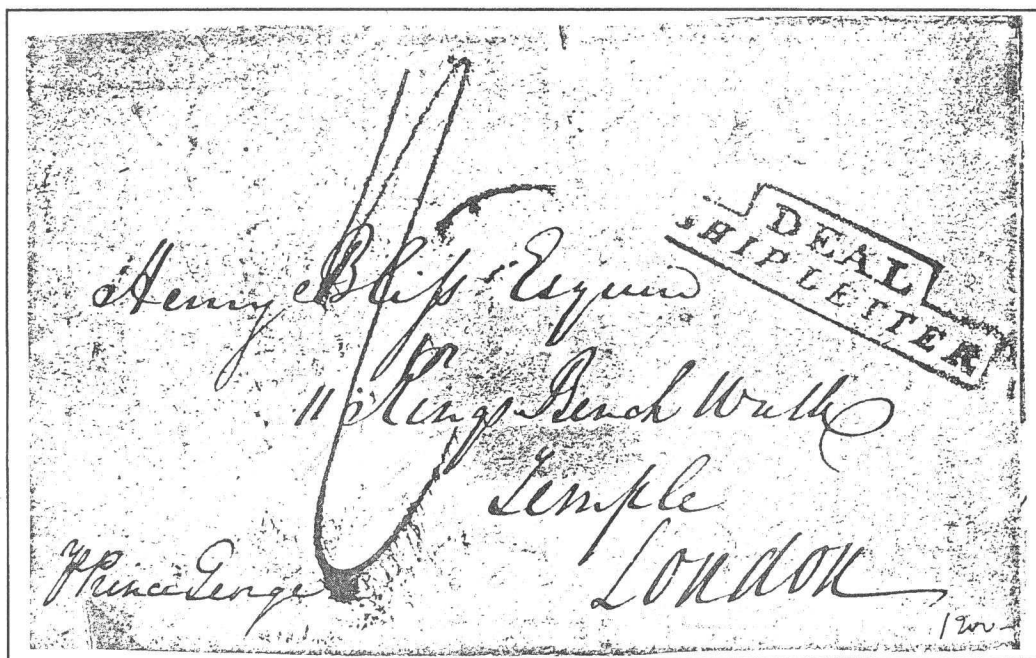 DEAL
SHIP LETTER
Henry Bliss Esquire
11 Kings Bench Walk
Temple
London
Pr Prince George